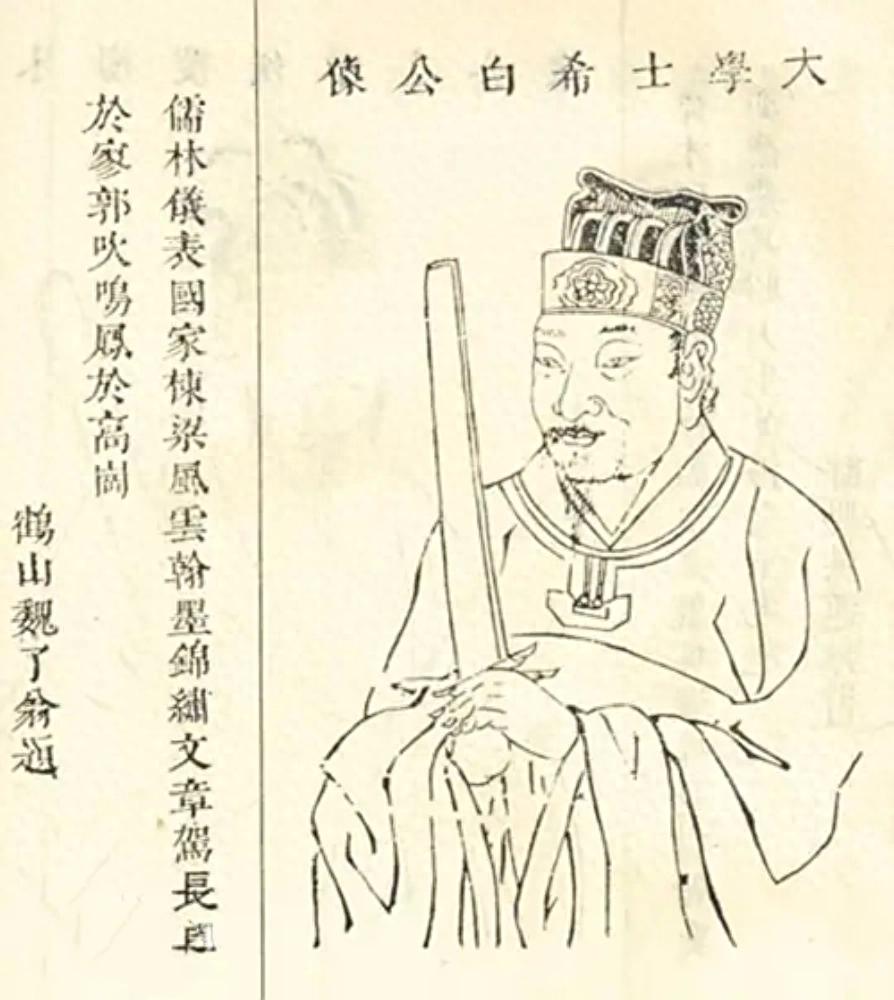 大學士希白公像
儒林儀表國家棟梁風雲翰墨錦繡文章駕長
於寥郭吹鳴鳳於高崗
鶴山魏了翁題